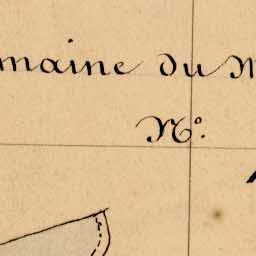 maine du M
N°.